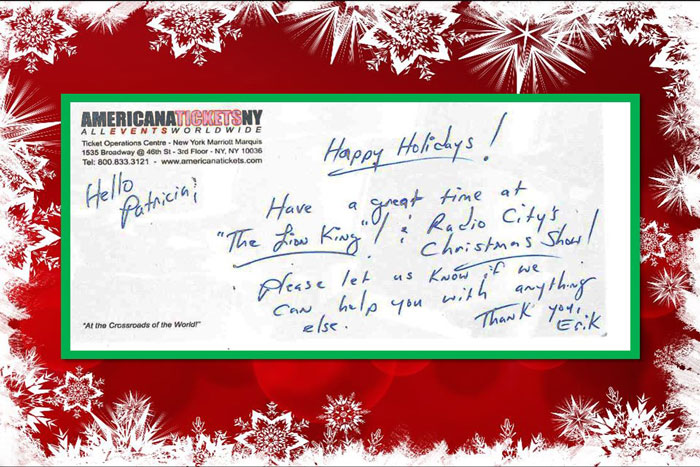 AMERICANATICKETSNY
ALLEVENTSWORLDWIDE
Ticket Operations Centre - New York Marriott Marquis
1535 Broadway @ 46th St - 3rd Floor - NY, NY 10036
Tel: 800.833.3121 - www.americanatickets.com
Happy Holidays!
Hello
Patricia!
Have a great time at
"The Lion King"! & Radio City's
Christmas Show!
Please let us know if we
can help you with anything
else.
Thank you,
Erik
"At the Crossroads of the World!"